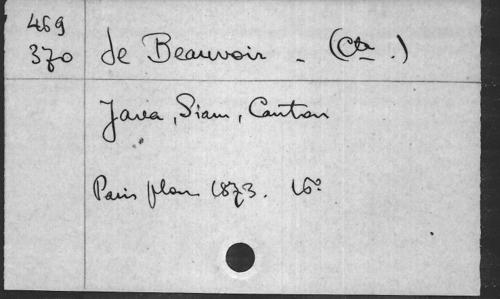 469
370 de Beauvoir - (Cte.)
Java, Siam, Canton
Paris plon 1873. 16°